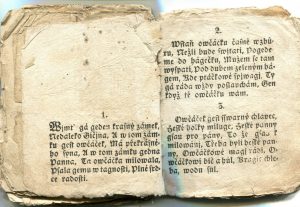 1.
Wjmť gá geden krásný zámek,
Nedaleko Gičjna, A w tom zám-
ku gest owčáček, Má překrásné-
ho syna, A w tom zámku gedna
Panna, Ta owčáka milowala,
Psala gemu w tagnosti, Plné srd-
ce radosti.
2.
Wstaň owčáčku časně wzhů-
ru, Nežli bude switati, Pogede-
me do hágečku, Můžem se tam
wyspati, Pod dubem zeleným há-
gem, Kde ptáčkowé zpjwagj, Ty
gá ráda wždy poslauchám, Gen
když tě owčáčku mám.
3.
Owčáček gest sswarný ďáblec,
Ženské holky miluge, Ženské panny
gsau pro pány, To se gjm
milowánj, Třeba byli ženské pan-
ny, Owčáčkowé magj rádi, O-
wčáčkowi bič a hůl,
ba, wodu sůl.